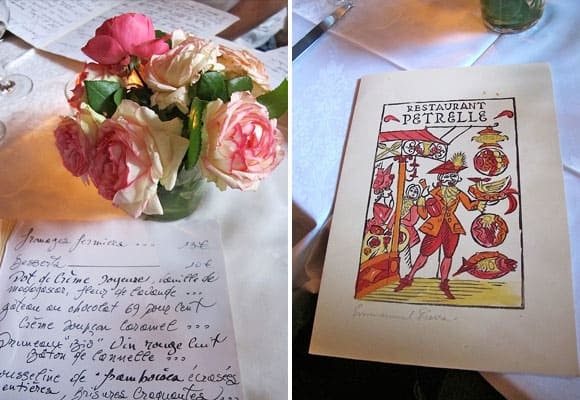 fromages fermiers ... 13€
Desserts 10€
Pot de Crème Joyeuse, vanille de
madagascar, fleur de lavande ...
gâteau au chocolat 69 pour cent
Crème soupçon caramel ...
Pruneaux "Bio" Vin rouge cuit
Bâton de Cannelle ...
ousseline de framboises écrasés
entières, Brisures Craquantes
RESTAURANT
PETRELLE
Emmanuel Pierre.